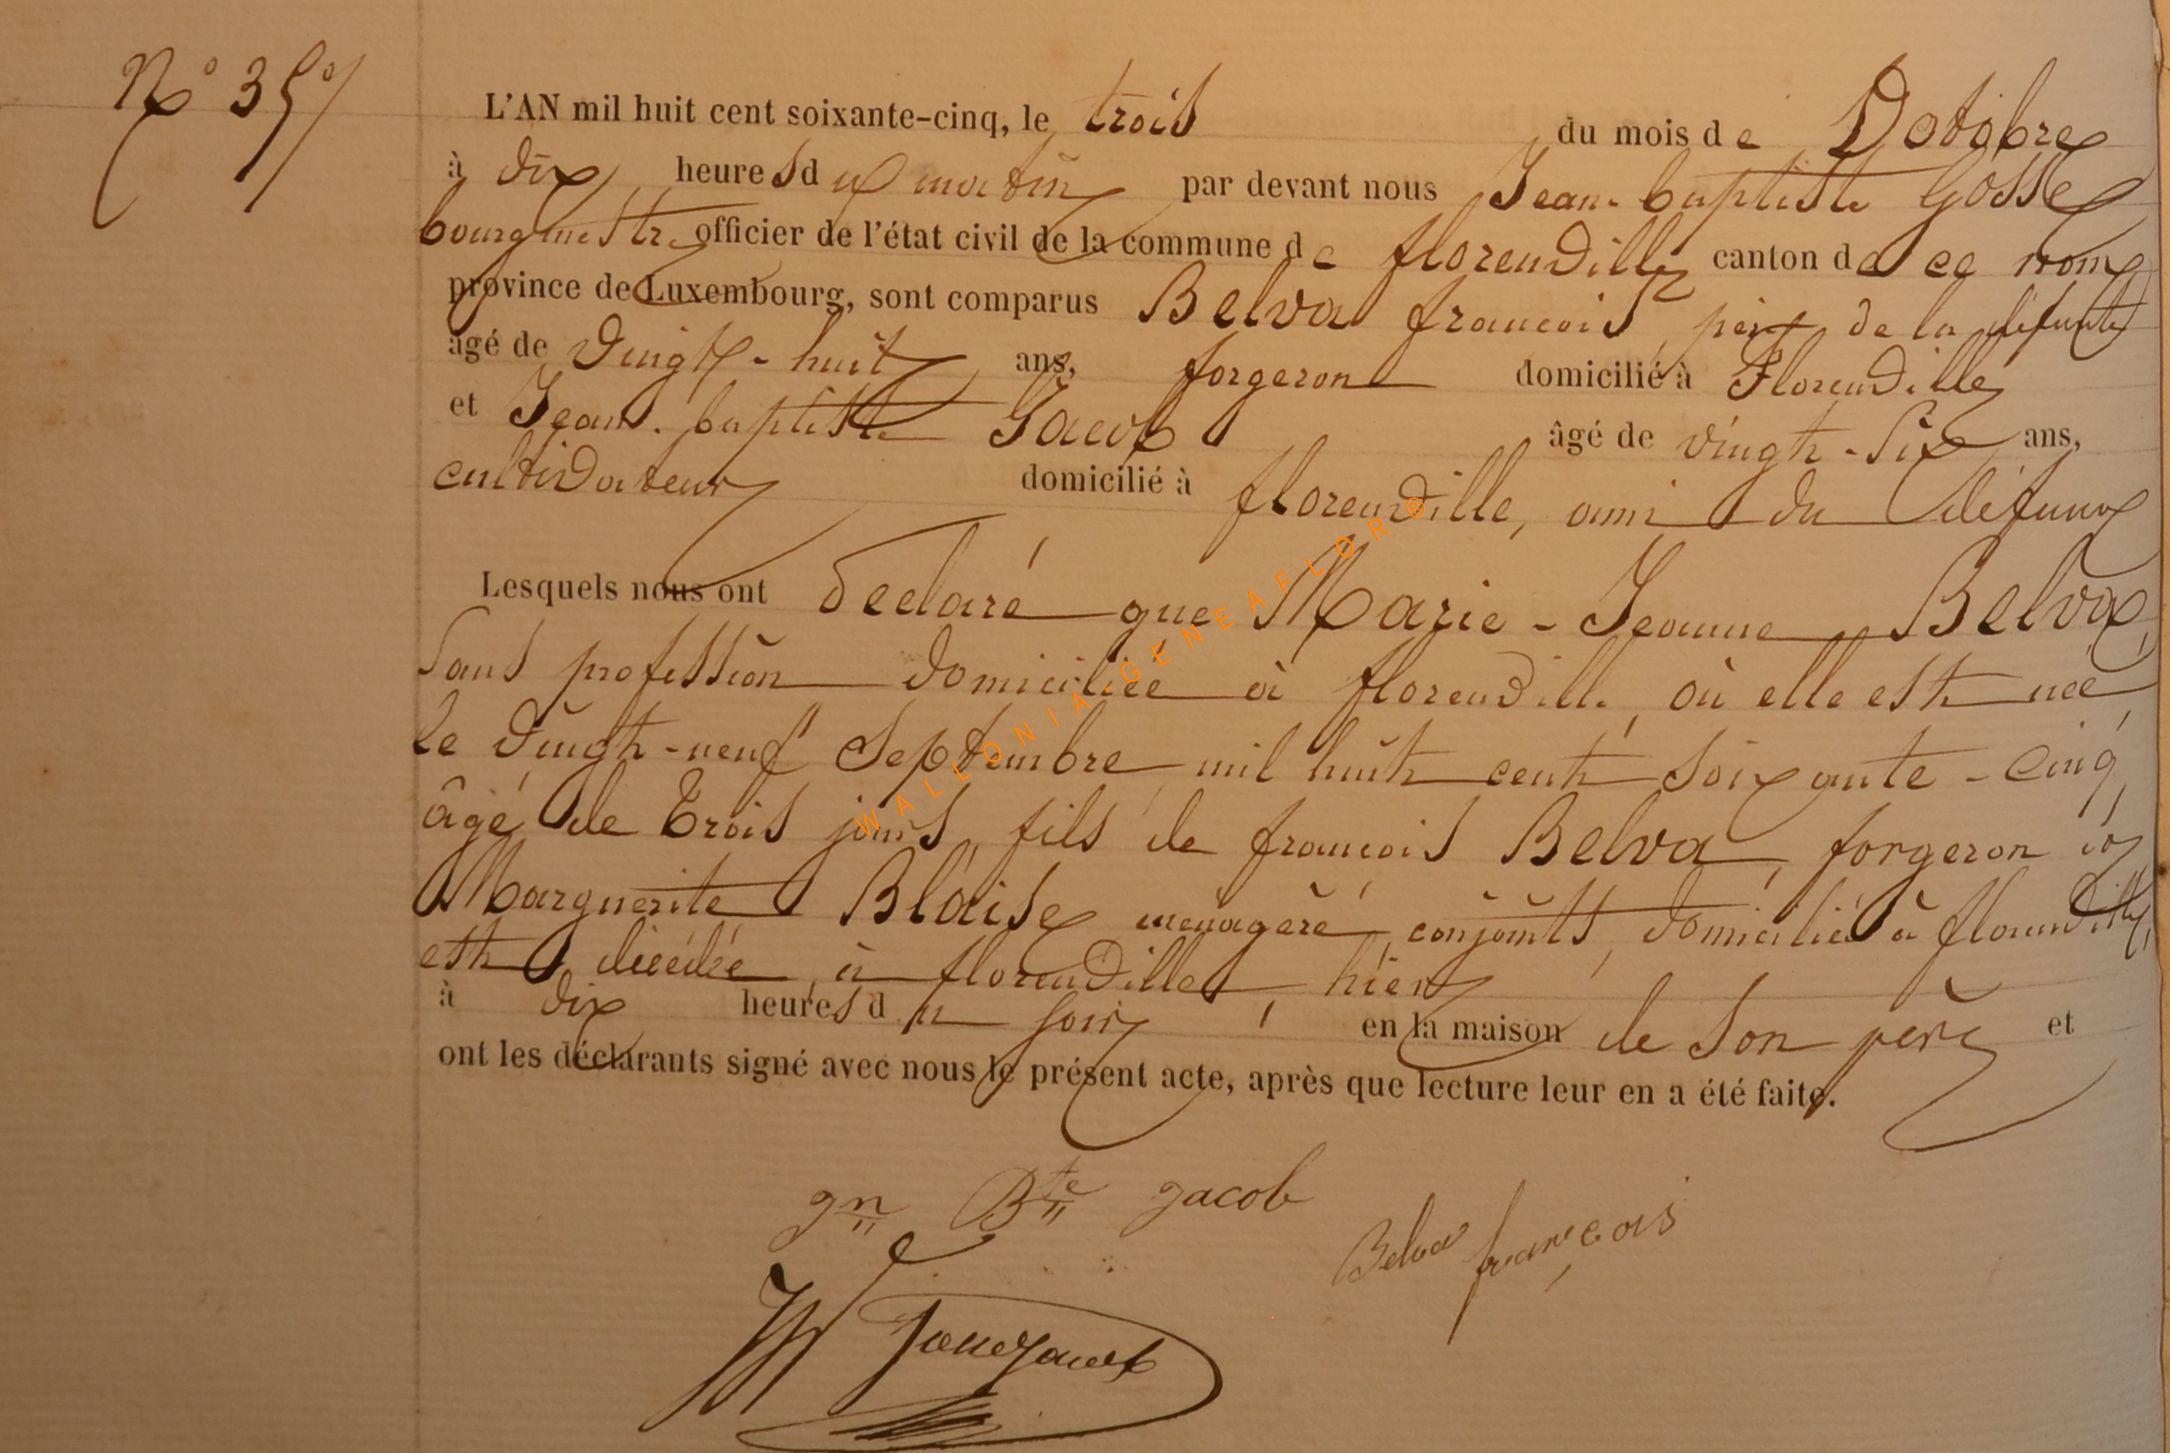 N° 35
L'AN mil huit cent soixante-cinq, le trois du mois de Octobre
à dix heures du matin par devant nous Jean-baptiste Gosse
bourgmestre officier de l'état civil de la commune de florenville canton de ce nom
province de Luxembourg, sont comparus Belva francois, père de la défunte
âgé de vingt-huit ans, forgeron domicilié à Florenville
et Jean-baptiste Jacob âgé de vingt-six ans,
cultivateur domicilié à florenville, ami du défunt
Lesquels nous ont déclaré que Marie-Jeanne Belva,
sans profession domiciliée à florenville, où elle est née
le vingt-neuf Septembre mil huit cent soixante-cinq,
âgé de trois jours, fils de francois Belva, forgeron et
Marguerite Blaise ménagère, conjoints, domiciliés à florenville,
est décédée à florenville, hier
à dix heures du soir, en la maison de son père et
ont les déclarants signé avec nous le présent acte, après que lecture leur en a été faite.
Jn Bte Jacob
Belva françois
WALLONIA GENEAFLOR®